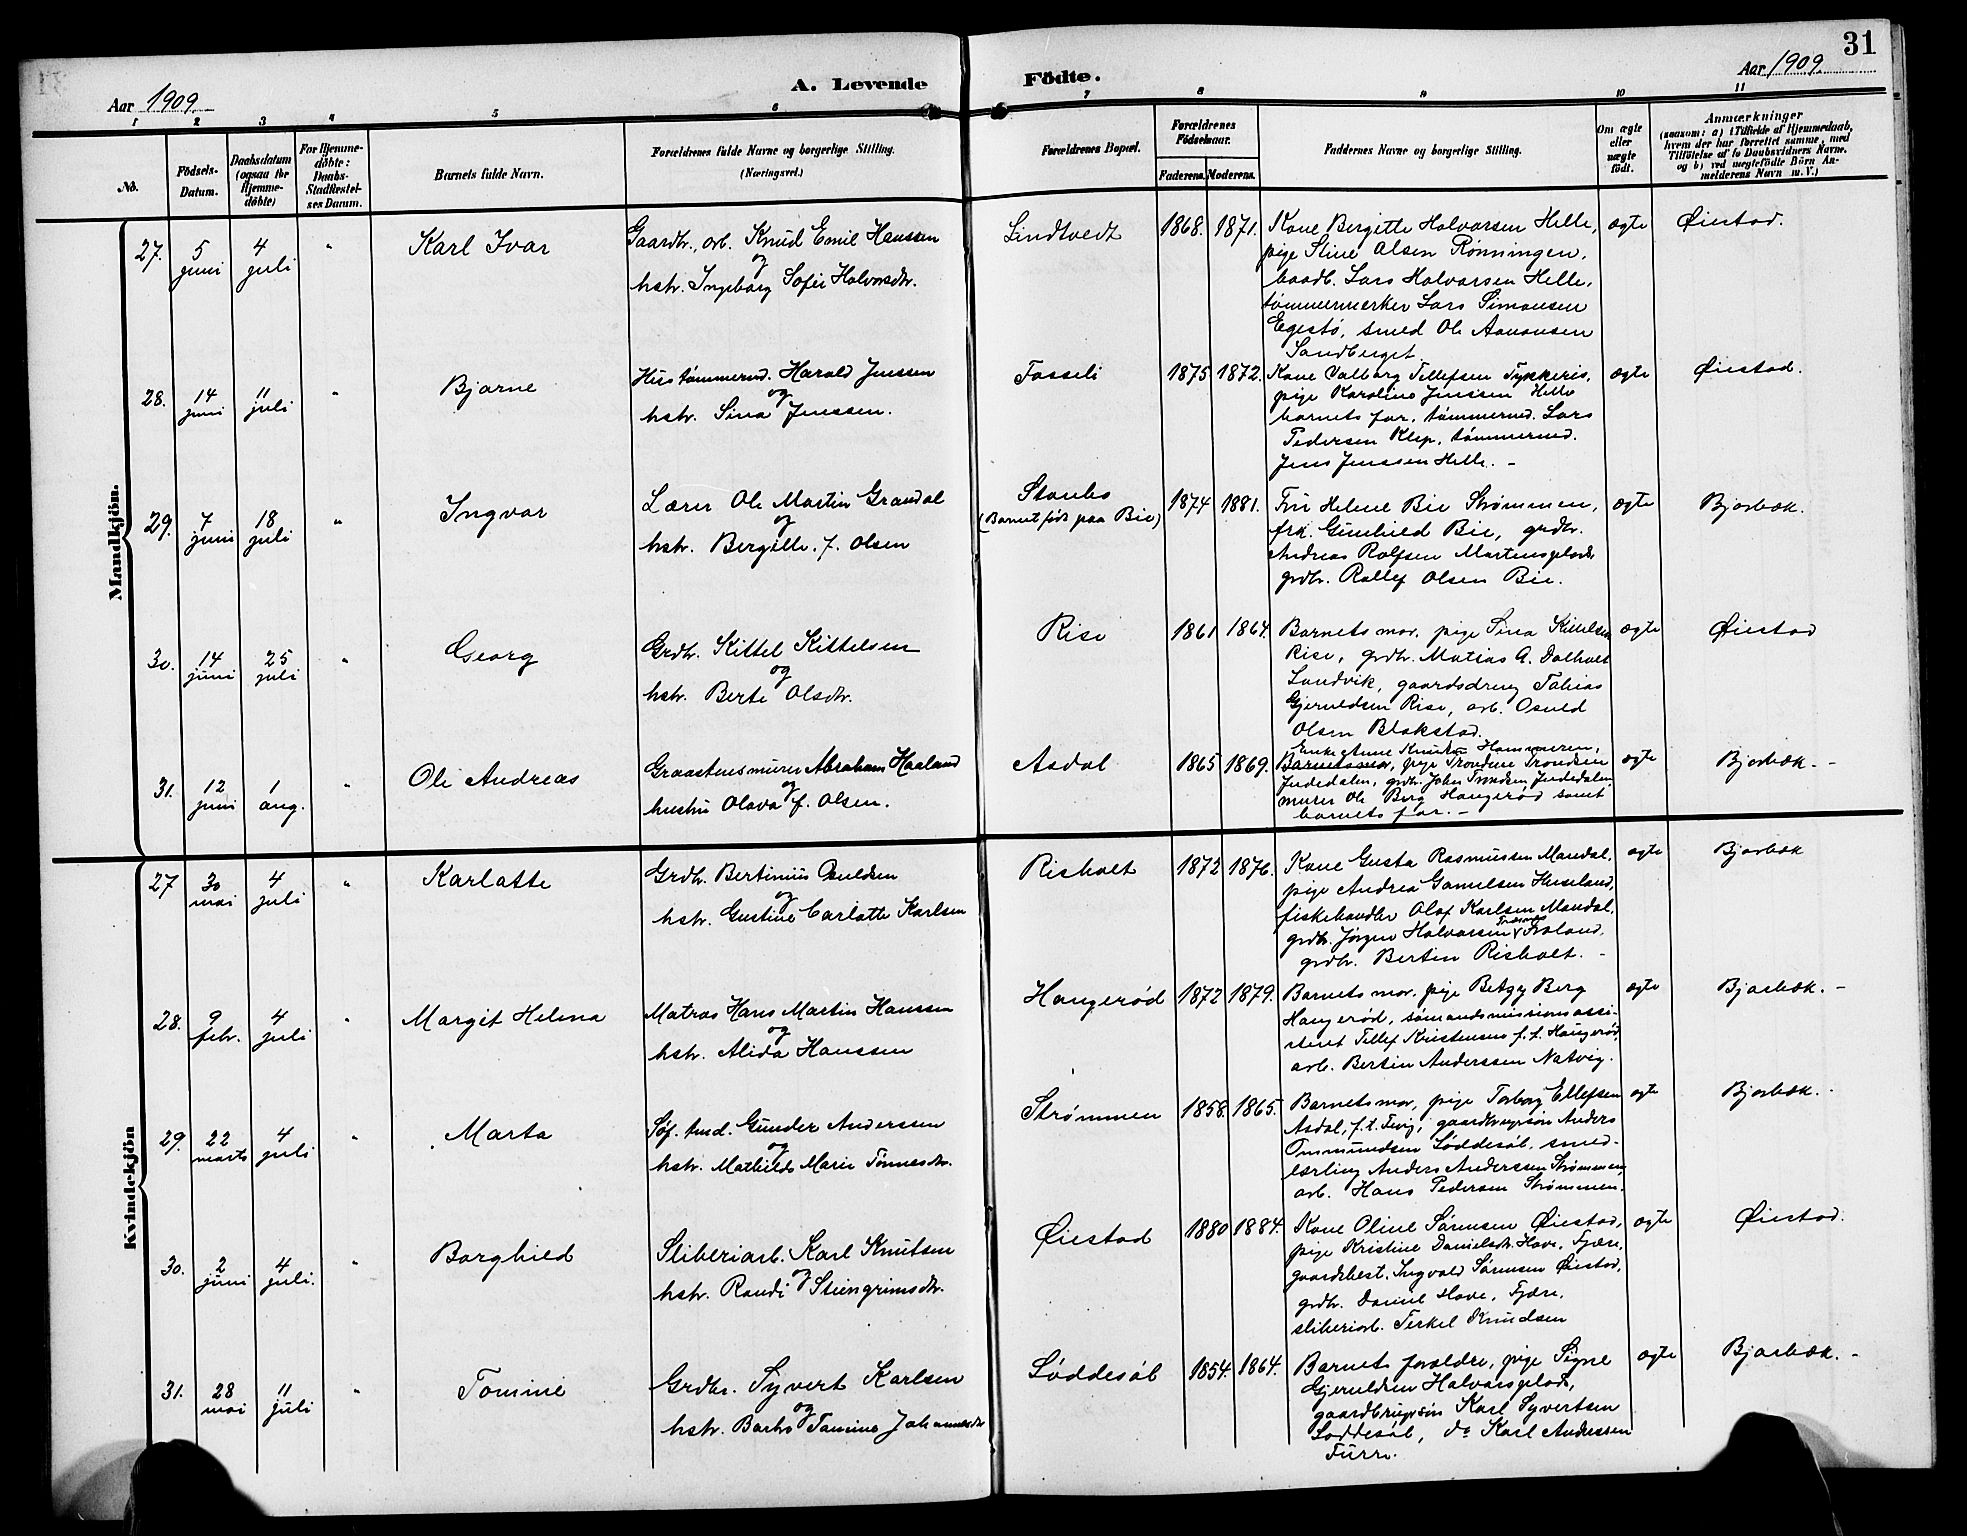 31
A. Levende Födte.
Aar 1909.
Aar 1909.
1 2 3 4 5 6 7 8 9 10 11
No.
Födsels-Datum.
Daabsdatum (ogsaa for Hjemme-döbte)
For Hjemme-döbte: Daabs-Stadfæstel-ses Datum.
Barnets fulde Navn.
Forældrenes fulde Navne og borgerlige Stilling. (Næringsvei.)
Forældrenes Bopæl.
Forældrenes Födselsaar.
Faderens. Moderens.
Faddernes Navne og borgerlige Stilling.
Om ægte eller uægte födt.
Anmærkninger
(saasom: a) i Tilfælde af Hjemmedaab, hvem der har forrettet samme, med Tilföielse af to Daabsvidners Navne. og b) ved uegtefödte Börn Anmelderens Navn m. V.)
Mandkjön.
27. 5 juni 4 juli " Karl Ivar
Gaardbr., arb. Knud Emil Hanssen
og
hstr. Ingeborg Sofie Halvorsdtr.
Lindtvedt 1868. 1871.
Kone Bergitte Halvorsen Helle,
pige Stine Olsen Rønningen,
baadb. Lars Halvorsen Helle,
tømmermerker Lars Simonsen
Egestø, smed Ole Aanonsen
Sandberget.
ægte Øiestad.
28. 14 juni 11 juli " Bjarne
Hustømmerm. Harald Jenssen
og
hstr. Sina Jenssen.
Fosseli 1875 1872.
Kone Valborg Tellefsen Tykkeris,
pige Karoline Jenssen Helle
barnets far, tømmermd. Lars
Pedersen Klep, tømmermd.
Jens Jenssen Helle. -
ægte Øiestad.
29. 7 juni 18 juli " Ingvar
Lærer Ole Martin Grændal
og
hstr. Bergitte f. Olsen
Staubo
(Barnet født paa Bie) 1874 1881.
Fru Helene Bie Strømmen,
frk. Gunhild Bie, grdbr.
Andreas Rolfsen Martinsplads,
grdbr. Rollef Olsen Bie.
ægte Bjorbæk.
30. 14 juni 25 juli " Georg
Grdbr. Kittel Kittelsen
og
hstr. Berte Olsdtr.
Rise 1861 1864.
Barnets mor, pige Sina Kittelsen
Rise, grdbr. Matias A. Dalholt
Landvik, gaardsdreng Tobias
Gjeruldsen Rise, arb. Osuld
Olsen Blakstad.
ægte Øiestad
31. 12 juni 1 aug. " Ole Andreas
Graastensmurer Abraham Haaland
og
hustru Olava f. Olsen.
Asdal 1865 1869.
Enke Anne Hammeren,
Barnets mor, pige Trondine Trondsen
Jerdedalen, grdbr. John Trondsen Jerdedalen
murer Ole Berg Haugerød samt
barnets far. -
ægte Bjorbæk. -
Kvindekjön
27 30 mai 4 juli " Karlotte
Grdbr. Bertinius Osuldsen
og
hstr. Gustine Carlotte Karlsen
Risholt 1872 1876.
Kone Gusta Rasmussen Mandal,
pige Andrea Gamelsen Huseland,
fiskehandler Olaf Karlsen Mandal,
grdbr. Jørgen Halvorsen Froland,
grdbr. Bertin Risholt. -
ægte Bjorbæk
28. 9 febr. 4 juli " Margit Helena
Matros Hans Martin Hanssen
og
hstr. Alida Hanssen
Haugerød 1872 1879.
Barnets mor, pige Betzy Berg
Haugerød, sømandsmissionsassi-
stent Tellef Kristensen f. t. Haugerød,
arb. Bertin Anderssen Natvig.
ægte Bjorbæk. -
29. 22 marts 4 juli " Marta
Søf. tmd. Gunder Andersen
og
hstr. Mathilde Marie Tønnesdtr.
Strømmen 1858. 1865.
Barnets mor, pige Torborg Ellefsen
Asdal, f. t. Fevig, gaardbrugersøn Anders
Ommundsen Løddesøl, smed-
lærling Anders Anderssen Strømmen,
arb. Hans Pedersen Strømmen.
ægte Bjorbæk.
30. 2 juni 4 juli. " Borghild
Sliberiarb. Karl Knutsen
og
hstr. Randi Steingrimsdtr.
Øiestad 1880 1884.
Kone Oline Sørensen Øiestad,
pige Kristine Danielsdtr. Hove, Fjære,
gaardsbest. Ingvald Sørensen Øiestad,
grdbr. Daniel Hove, Fjære,
sliberiarb. Terkel Knudsen
ægte Øiestad.
31. 28 mai 11 juli " Tomine
Grdbr. Syvert Karlsen
og
hstr. Barbro Tomine Johannesdtr
Løddesøl 1854. 1864.
Barnets forældre, pige Signe
Gjeruldsen Halvorsplads,
gaardbrugersøn Karl Syvertsen
Løddesøl, do Karl Andressen
Furre.
ægte Bjorbæk. -